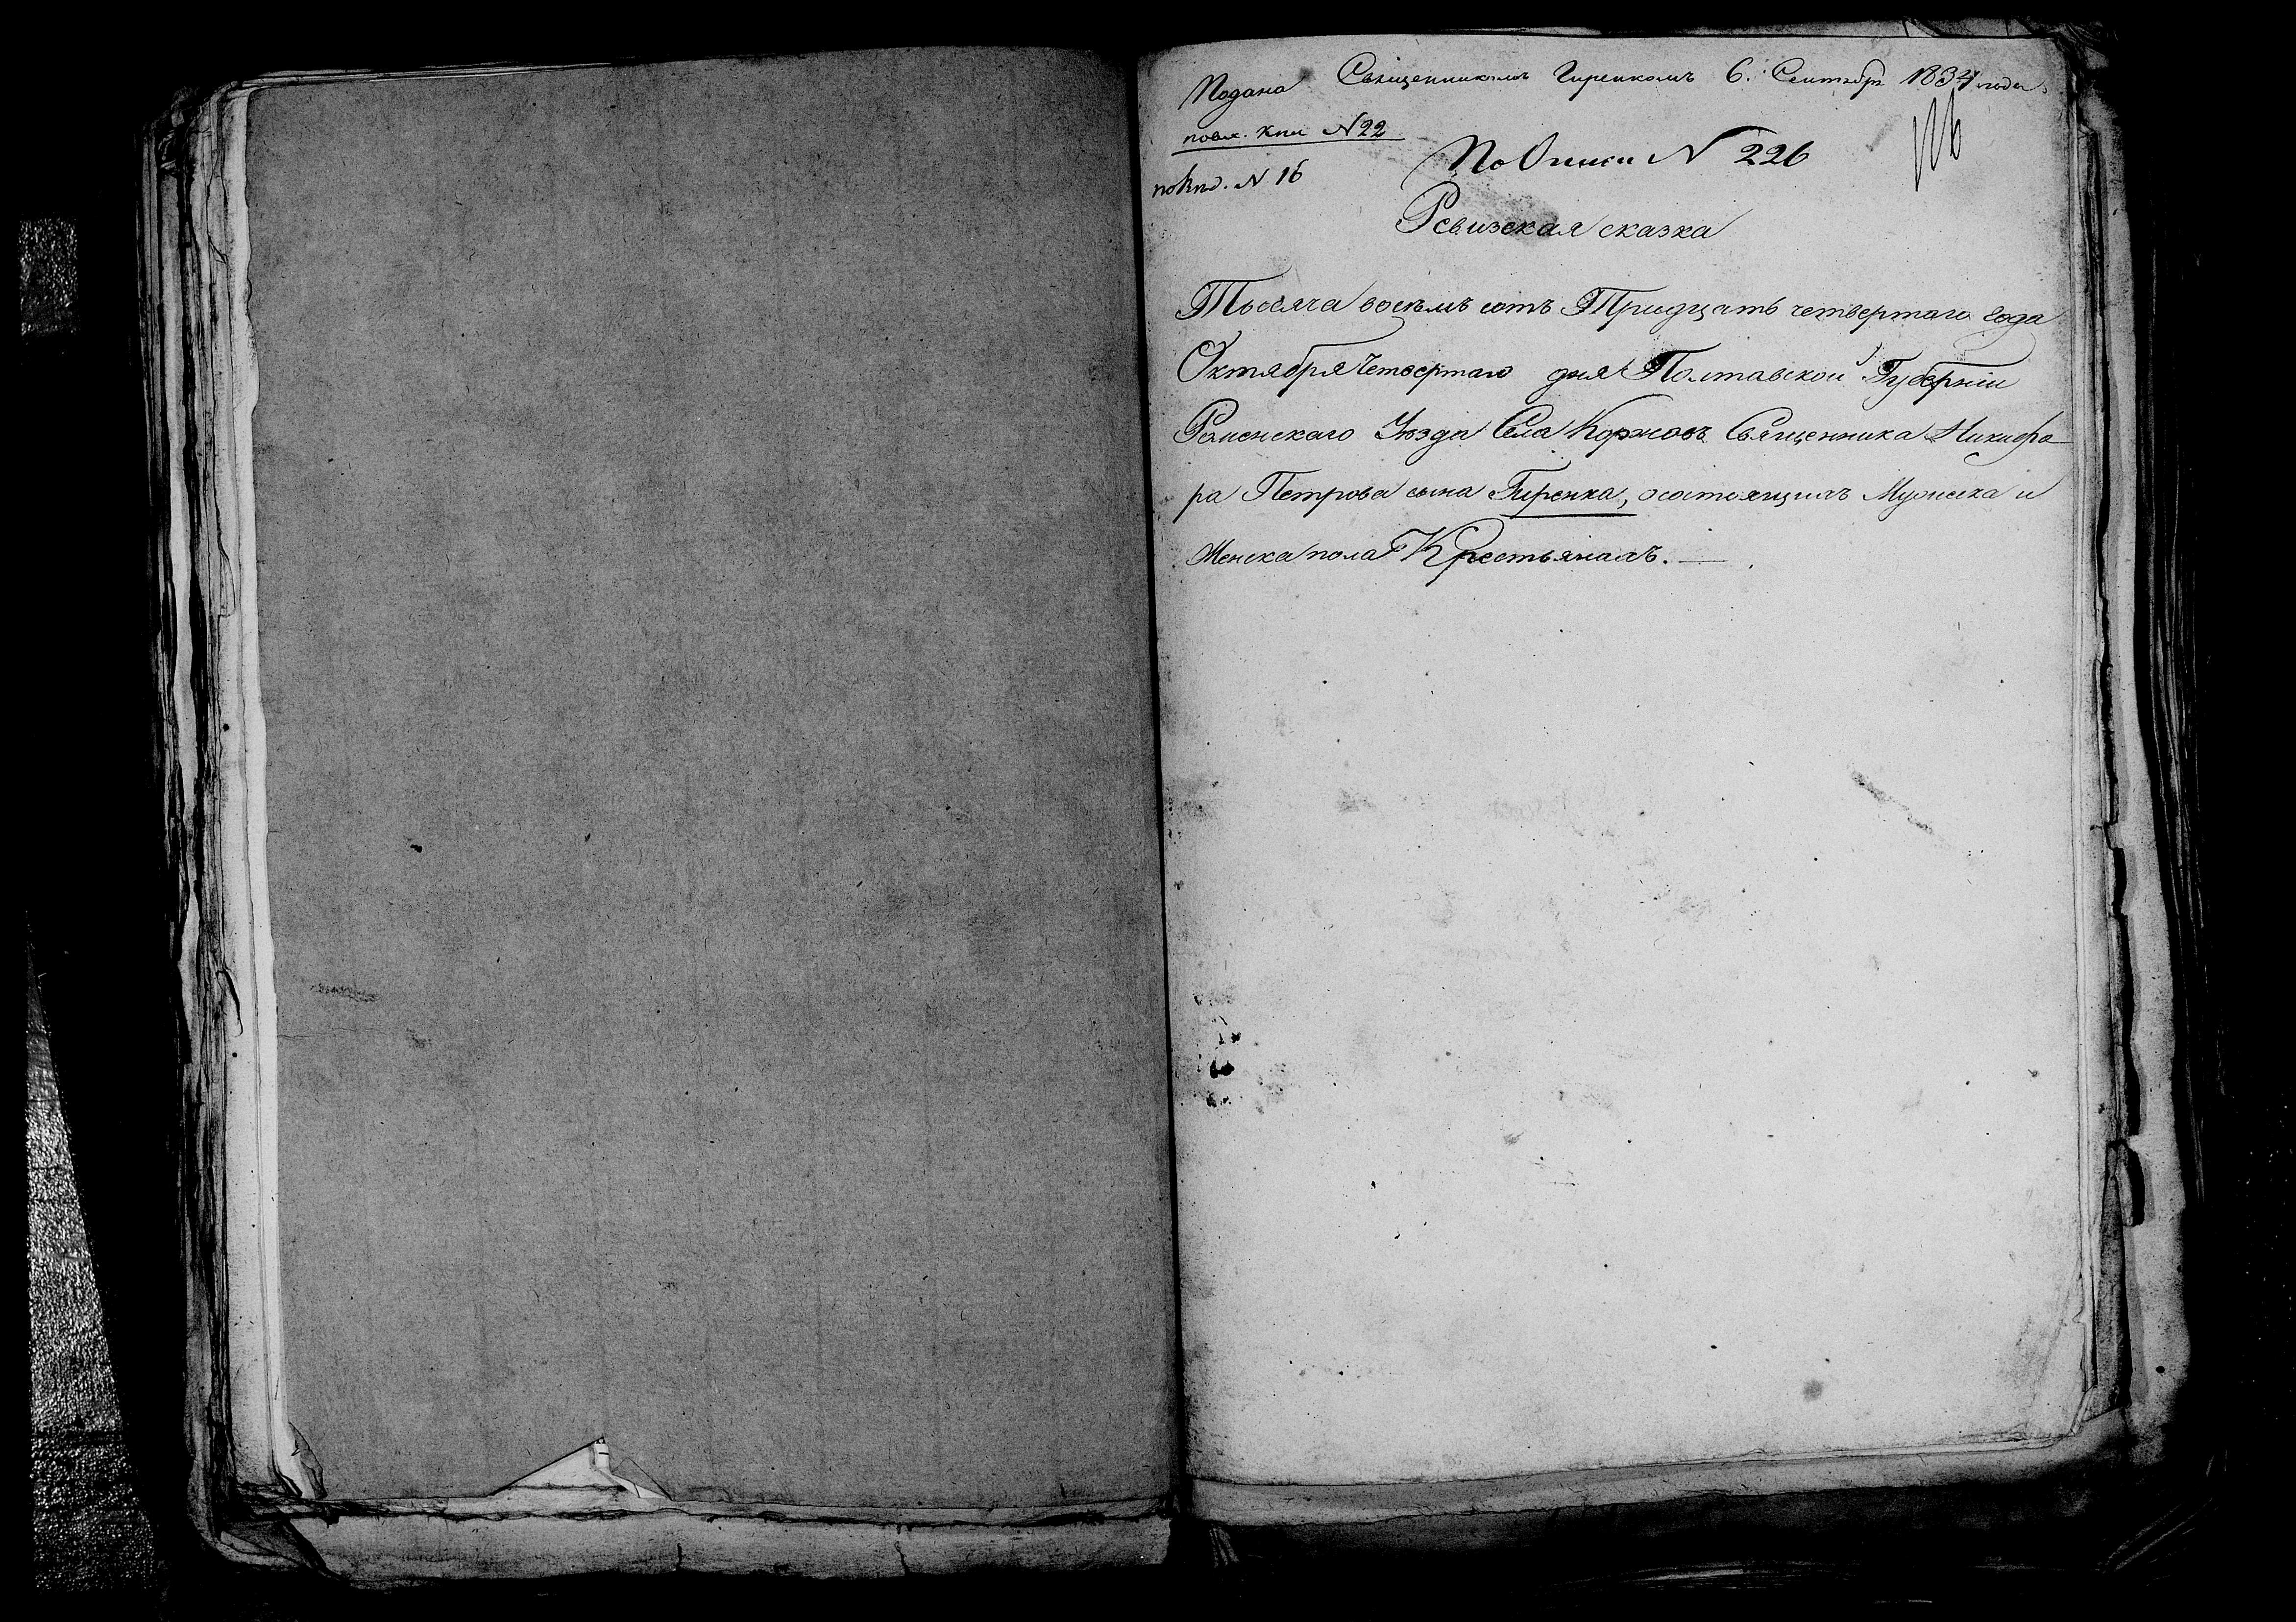 Подана Священникомъ Гиренкомъ 6. Сентябр 1834 года
повх. кни N 22
По Описи N 226
по N 16
Ревизская сказка
Тысяча восемъ сотъ Тридцать четвертаго Года
Октября Четвертаго дня Полтавской Губернiи
Роменскаго Уѣзда Села Коржовъ Священника Никифо-
ра Петрова сына Гиренка, осостоящихъ Мужеска и
Женска пола Крестьянахъ. —